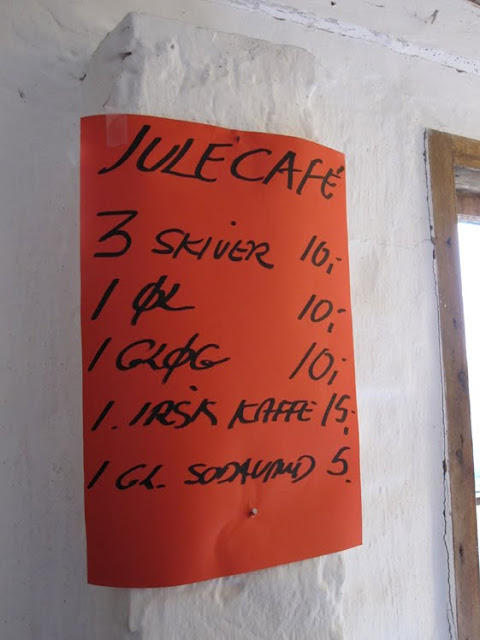 JULECAFÉ
3 SKIVER 10,-
1 ØL 10,-
1 GLØG 10,-
1. IRSK KAFFE 15,-
1 GL. SODAVAND 5.